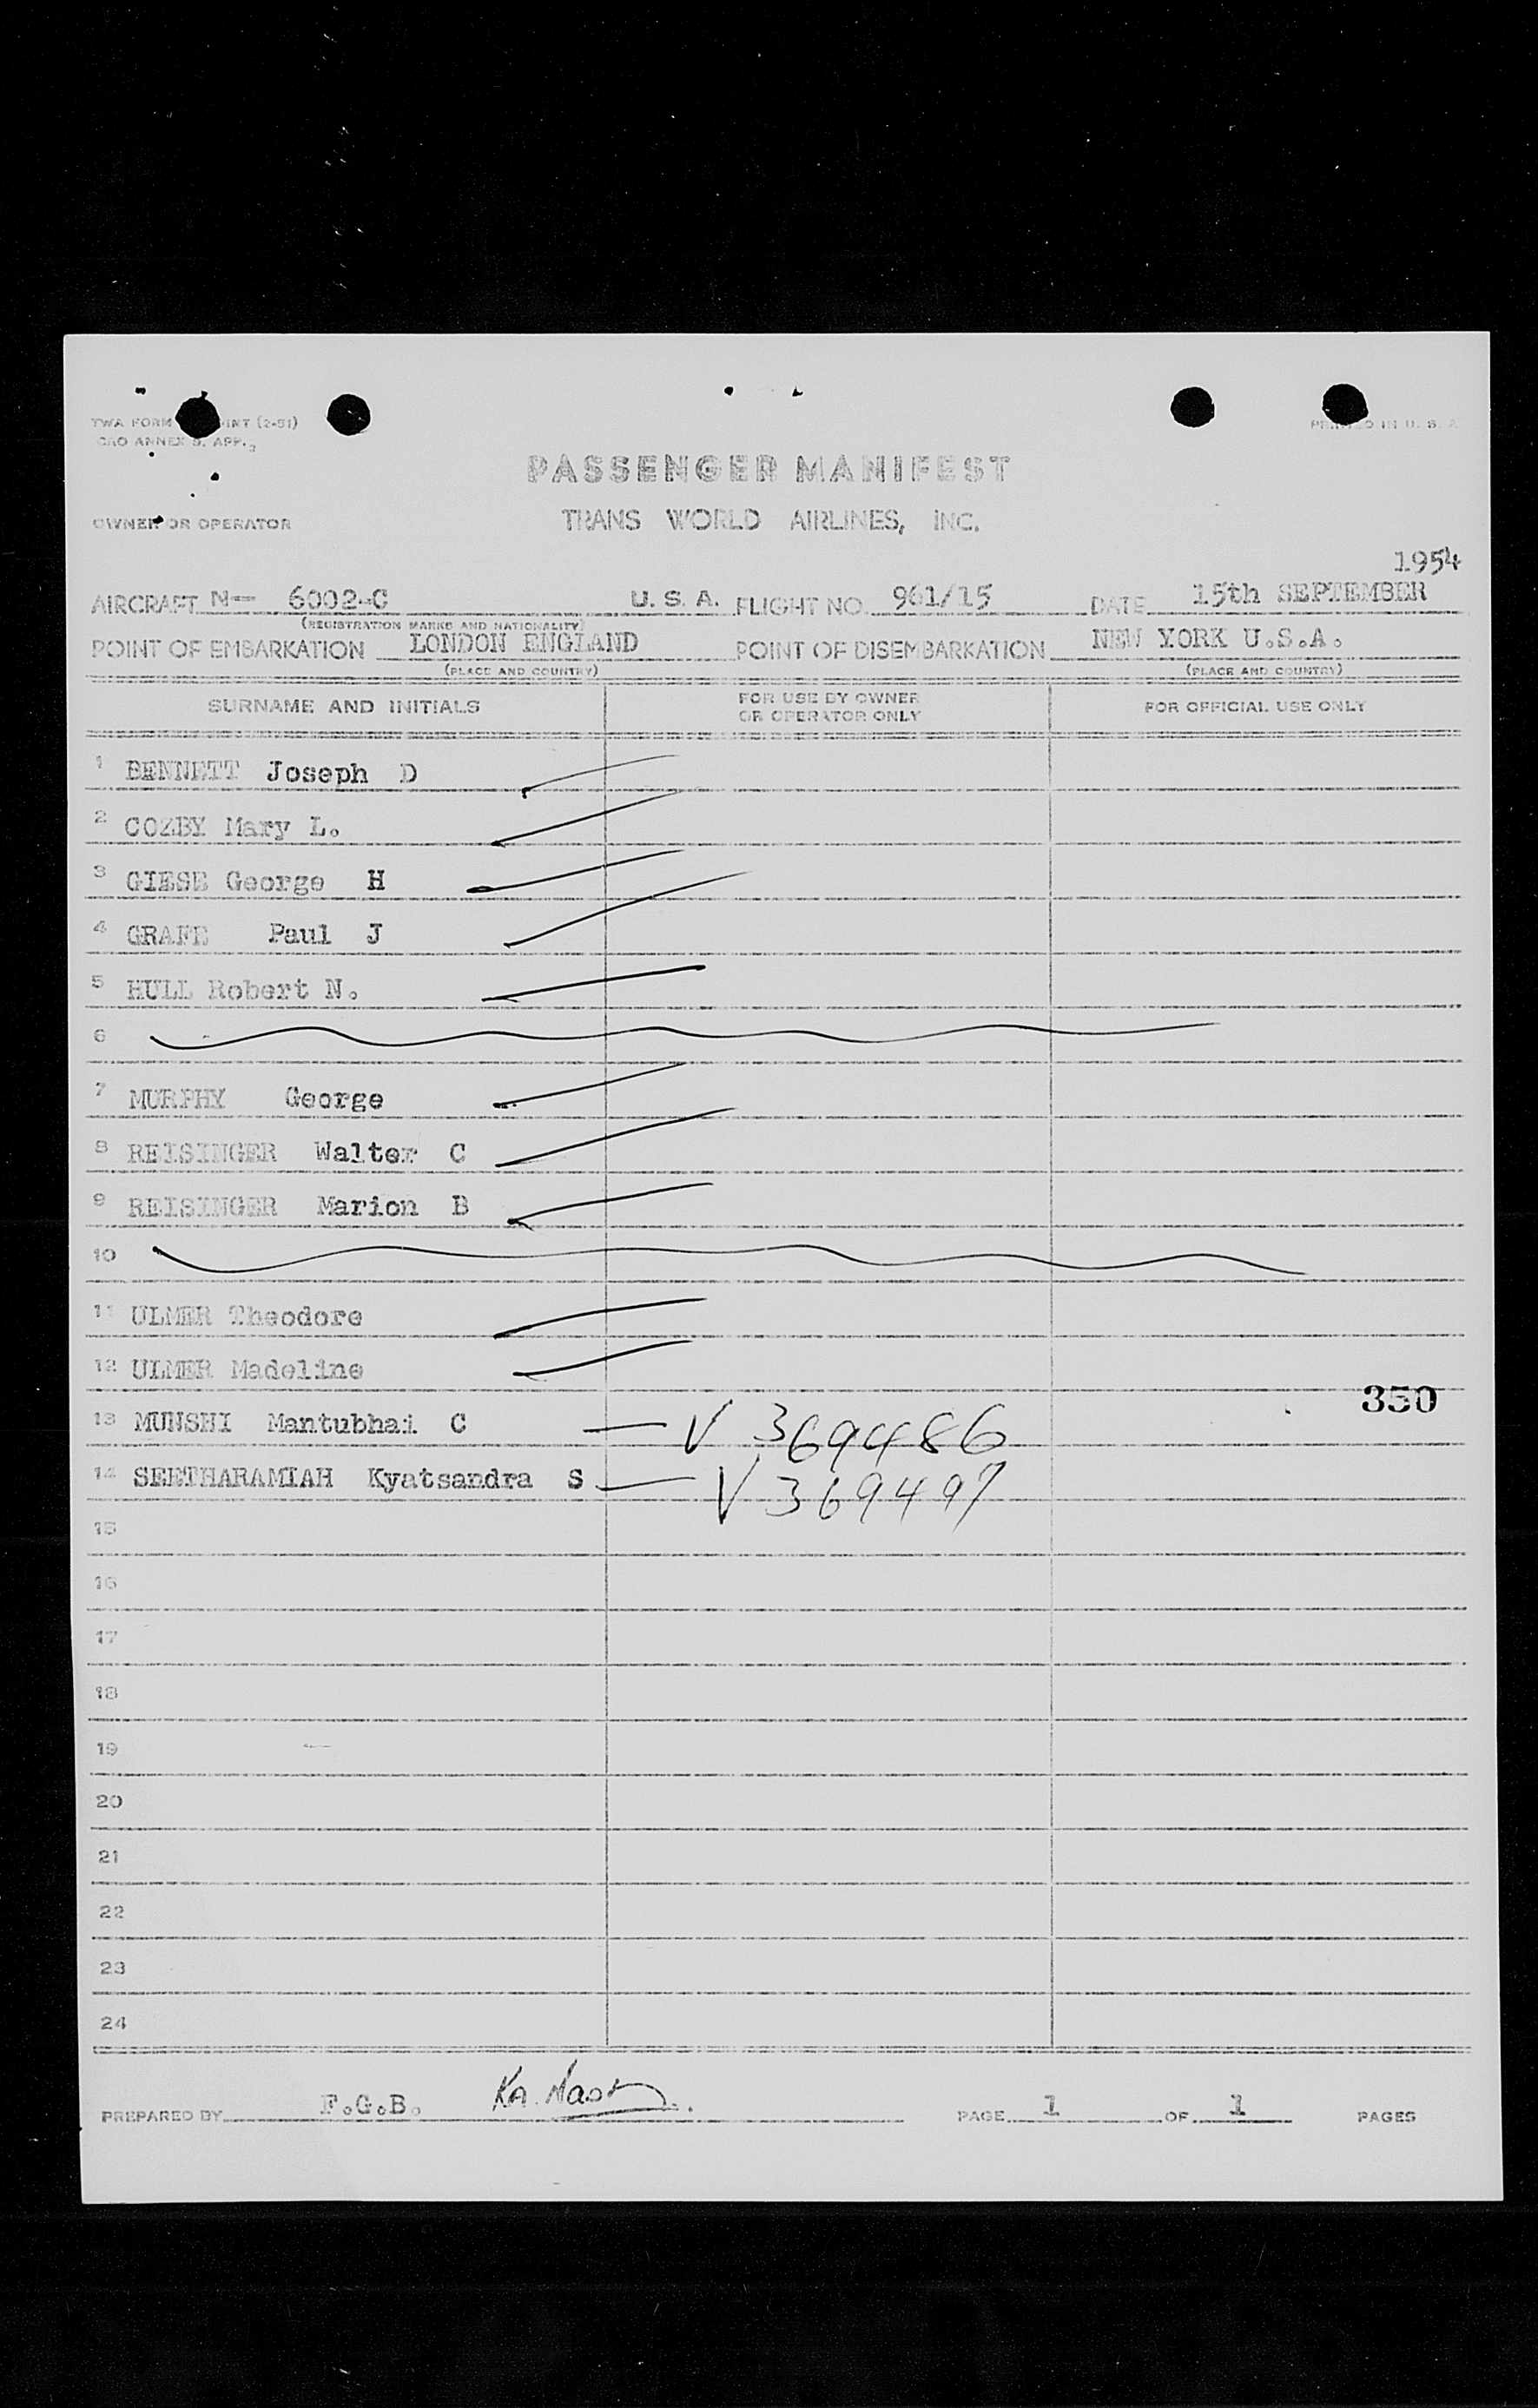 TWA FORM INT (2-51)
CAO ANNEX 9, APP. 3
PRINTED IN U. S. A
PASSENGER MANIFEST
OWNER OR OPERATOR TRANS WORLD AIRLINES, INC.
1954
AIRCRAFT N- 6002-C U. S. A. FLIGHT NO. 961/15 DATE 15th SEPTEMBER
(REGISTRATION MARKS AND NATIONALITY)
POINT OF EMBARKATION LONDON ENGLAND POINT OF DISEMBARKATION NEW YORK U.S.A.
(PLACE AND COUNTRY) (PLACE AND COUNTRY)
SURNAME AND INITIALS FOR USE BY OWNER OR OPERATOR ONLY FOR OFFICIAL USE ONLY
1 BENNETT Joseph D
2 COZBY Mary L.
3 GIESE George H
4 GRAFE Paul J
5 HULL Robert N.
6
7 MURPHY George
8 REISINGER Walter C
9 REISINGER Marion B
10
11 ULMER Theodore
12 ULMER Madeline
350
13 MUNSHI Mantubhai C — V 369486
14 SEETHARAMIAH Kyatsandra S — V 369497
15
16
17
18
19
20
21
22
23
24
PREPARED BY F.G.B. PAGE 1 OF 1 PAGES